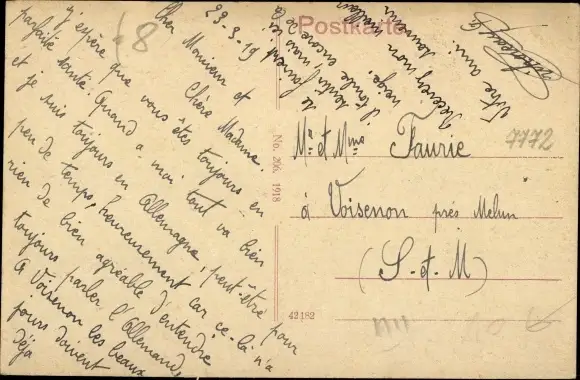 Postkarte
23-3-19
Cher Monsieur et
Chère Madame.
J'espère que vous êtes toujours en
parfaite santé. Quand à moi tout va bien
et je suis toujours en Allemagne, peut-être pour
peu de temps, heureusement car ce-là n'a
rien de bien agréable d'entendre
toujours parler l'Allemand,
A Voisenon les beaux
jours doivent
déjà
se faire
sentir, mais ici
il tombe encore de la
neige.
Recevez mon meilleur
souvenir
Votre ami.
No. 266, 1918
42182
Mr et Mme Faurie
7772
à Voisenon près Melun
(S-et-M)